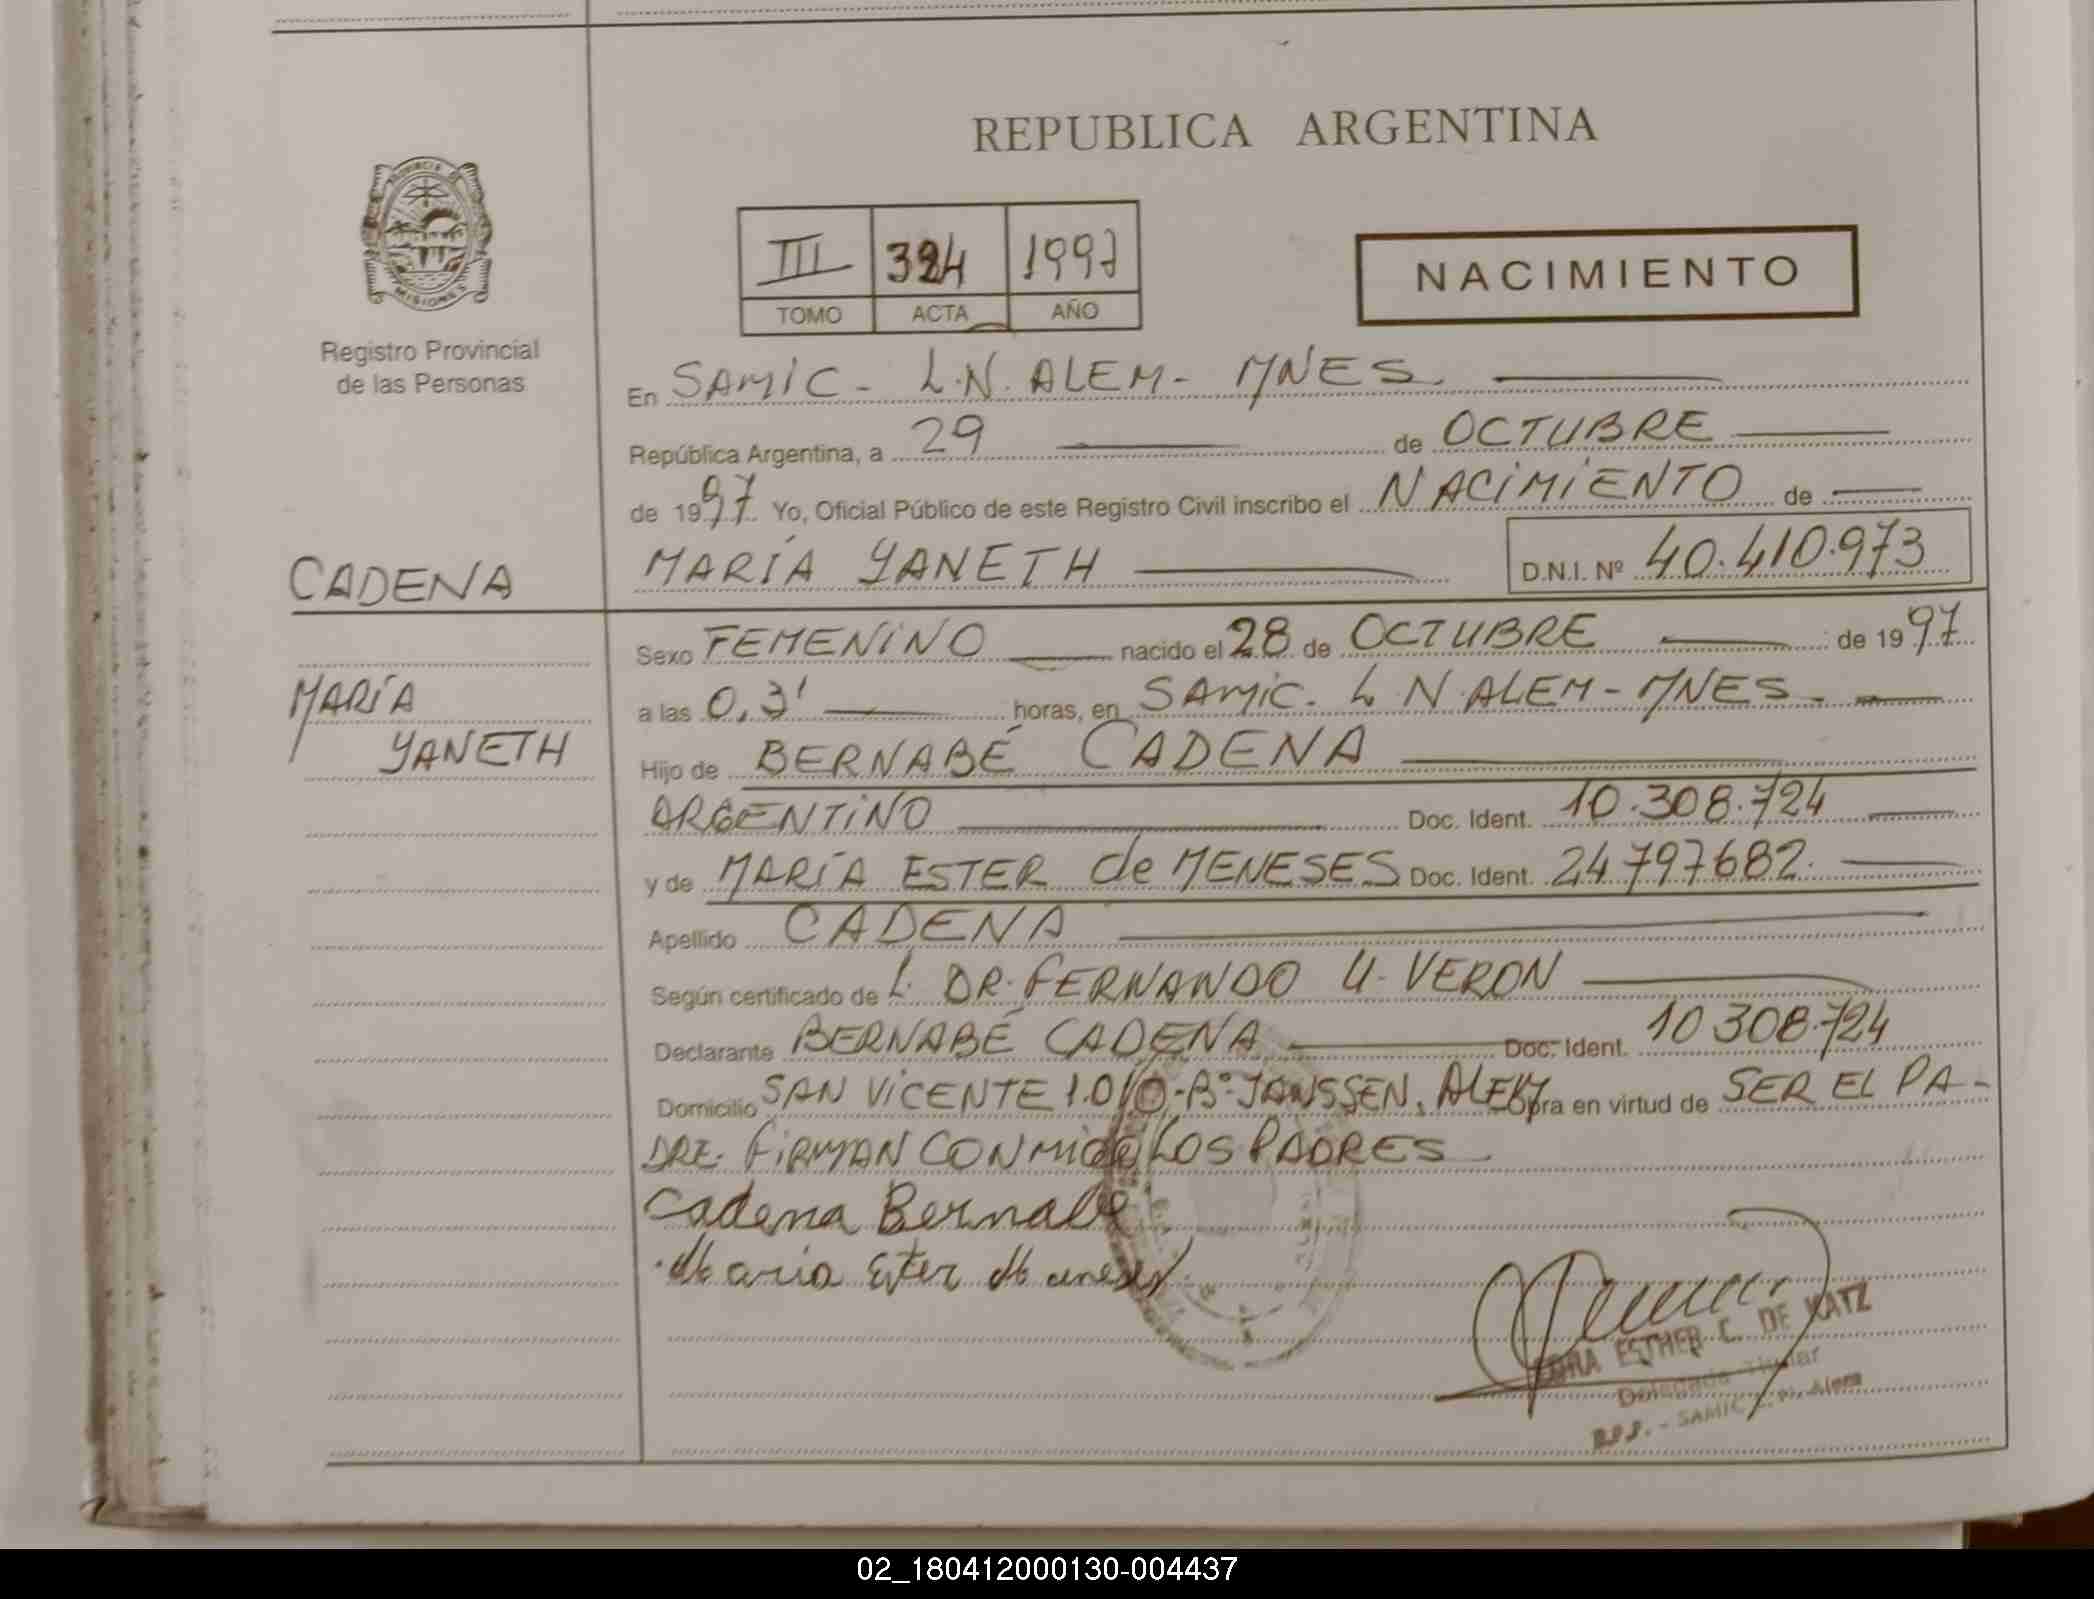 REPUBLICA ARGENTINA
PROVINCIA D
MISIONES
Registro Provincial
de las Personas
III 324 1997
TOMO ACTA AÑO
NACIMIENTO
En SAMIC - L.N. ALEM - MNES
República Argentina, a 29 de OCTUBRE
de 1997 Yo, Oficial Público de este Registro Civil inscribo el NACIMIENTO de
CADENA
MARÍA YANETH D.N.I. Nº 40.410.973
MARÍA
YANETH
Sexo FEMENINO nacido el 28 de OCTUBRE de 1997
a las 0,3' horas, en SAMIC. L N. ALEM - MNES -
Hijo de BERNABÉ CADENA
ARGENTINO Doc. Ident. 10.308.724
y de MARÍA ESTER de MENESES Doc. Ident. 24797682.
Apellido CADENA
Según certificado de L. DR. FERNANDO U. VERON
Declarante BERNABÉ CADENA Doc. Ident. 10308.724
Domicilio SAN VICENTE 1.010-Bº JANSSEN. ALEM Obra en virtud de SER EL PA-
DRE. FIRMAN CONMIGO LOS PADRES
Cadena Bernabe
Maria Ester Meneses
ESTHER C. DE KATZ
Delegada Titular
- SAMIC L. N. Alem
02_180412000130-004437